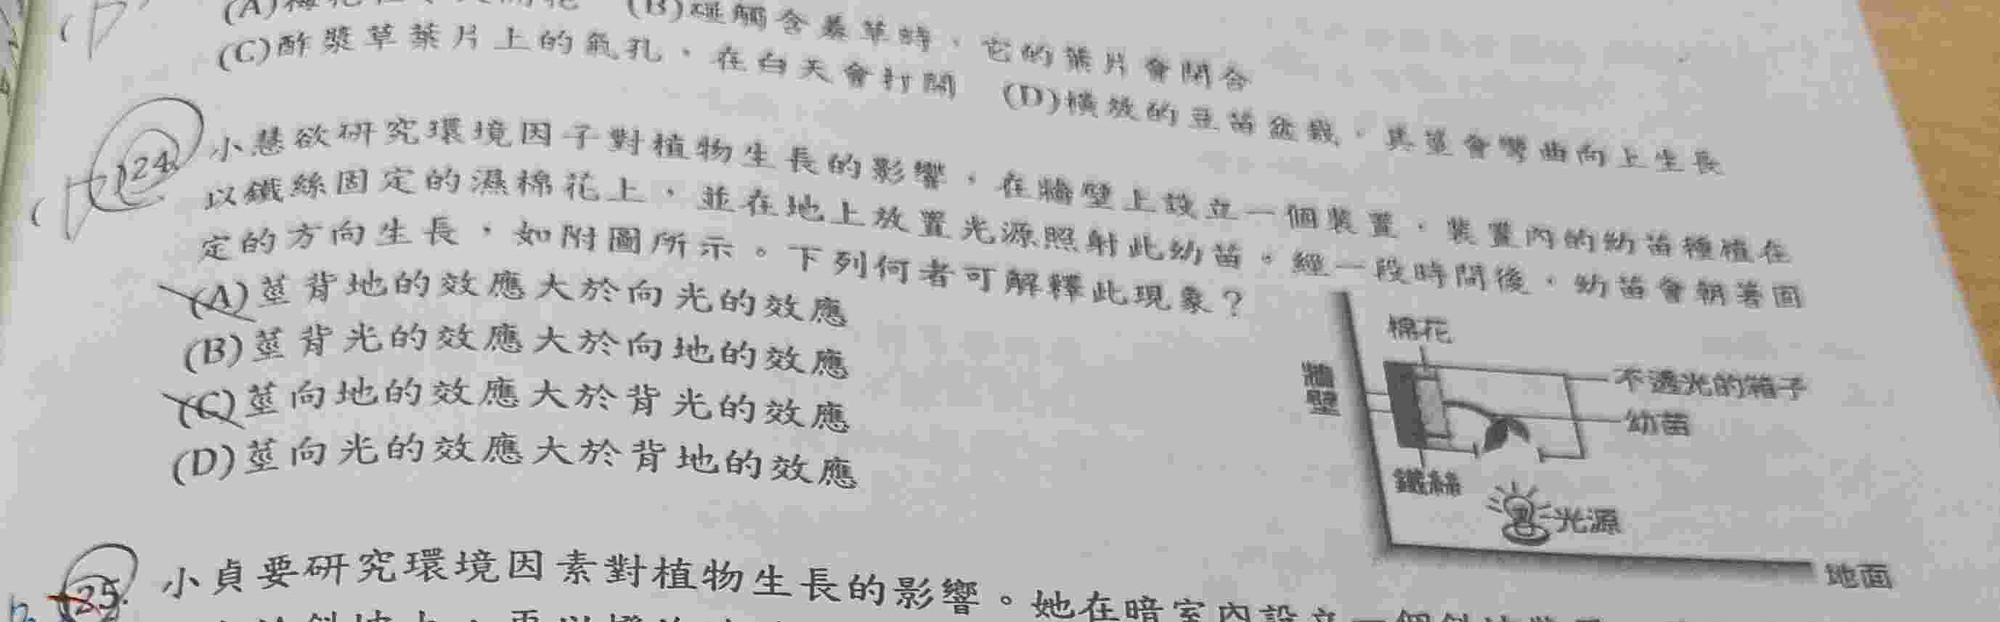 (B)碰觸含羞草時，它的葉片會閉合
(C)酢漿草葉片上的氣孔，在白天會打開 (D)橫放的豆苗盆栽，其莖會彎曲向上生長
124. 小慧欲研究環境因子對植物生長的影響，在牆壁上設立一個裝置，裝置內的幼苗種植在
以鐵絲固定的濕棉花上，並在地上放置光源照射此幼苗。經一段時間後，幼苗會朝著固
定的方向生長，如附圖所示。下列何者可解釋此現象？
(A)莖背地的效應大於向光的效應
(B)莖背光的效應大於向地的效應
(C)莖向地的效應大於背光的效應
(D)莖向光的效應大於背地的效應
棉花
牆壁
不透光的箱子
幼苗
鐵絲
光源
地面
125. 小貞要研究環境因素對植物生長的影響。她在暗室內設立一個